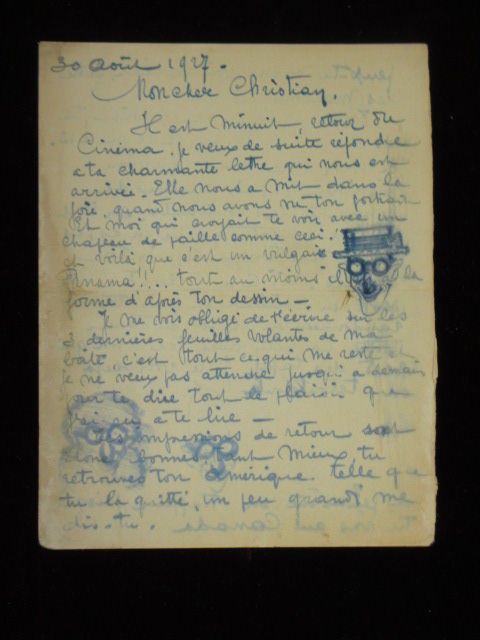 30 Août 1927.
Mon cher Christian,
Il est minuit, retour du
Cinéma. je veux de suite répondre
a ta charmante lettre qui nous est
arrivée. Elle nous a mit dans la
joie, quand nous avons vu ton portrait
Et moi qui croyait te voir avec un
chapeau de paille comme ceci!
et voilà que c'est un vulgaire
Panama!... tout au moins il a la
forme d'après ton dessin —.
Je me vois obligé de t'écrire sur les
2 dernières feuilles volantes de ma
boîte, c'est tout ce qui me reste et
je ne veux pas attendre jusqu'a demain
pour te dire tout le plaisir que
j'ai eu a te lire —
impressions de retour sont
donc bonnes, tant mieux, tu
retrouves ton Amérique telle que
tu la quitté, un peu grandi me
dis-tu.